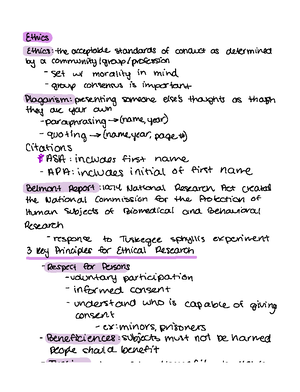 Ethics
Ethics: the acceptable standards of conduct as determined
by a community/group/profession
- set w/ morality in mind
- group consensus is important
Plagarism: presenting someone else's thoughts as though
they are your own
- paraphrasing → (name, year)
- quoting → (name, year, page #)
Citations
ASA: includes first name
- APA: includes initial of first name
Belmont Report: 1974 National Research Act created
the National Commission for the Protection of
Human Subjects of Biomedical and Behavioral
Research
- response to Tuskegee syphllis experiment
3 Key Principles for Ethical Research
- Respect for Persons
- voluntary participation
- informed consent
- understand who is capable of giving
consent
- ex: minors, prisoners
- Beneficiences: subjects must not be harmed
people should benefit